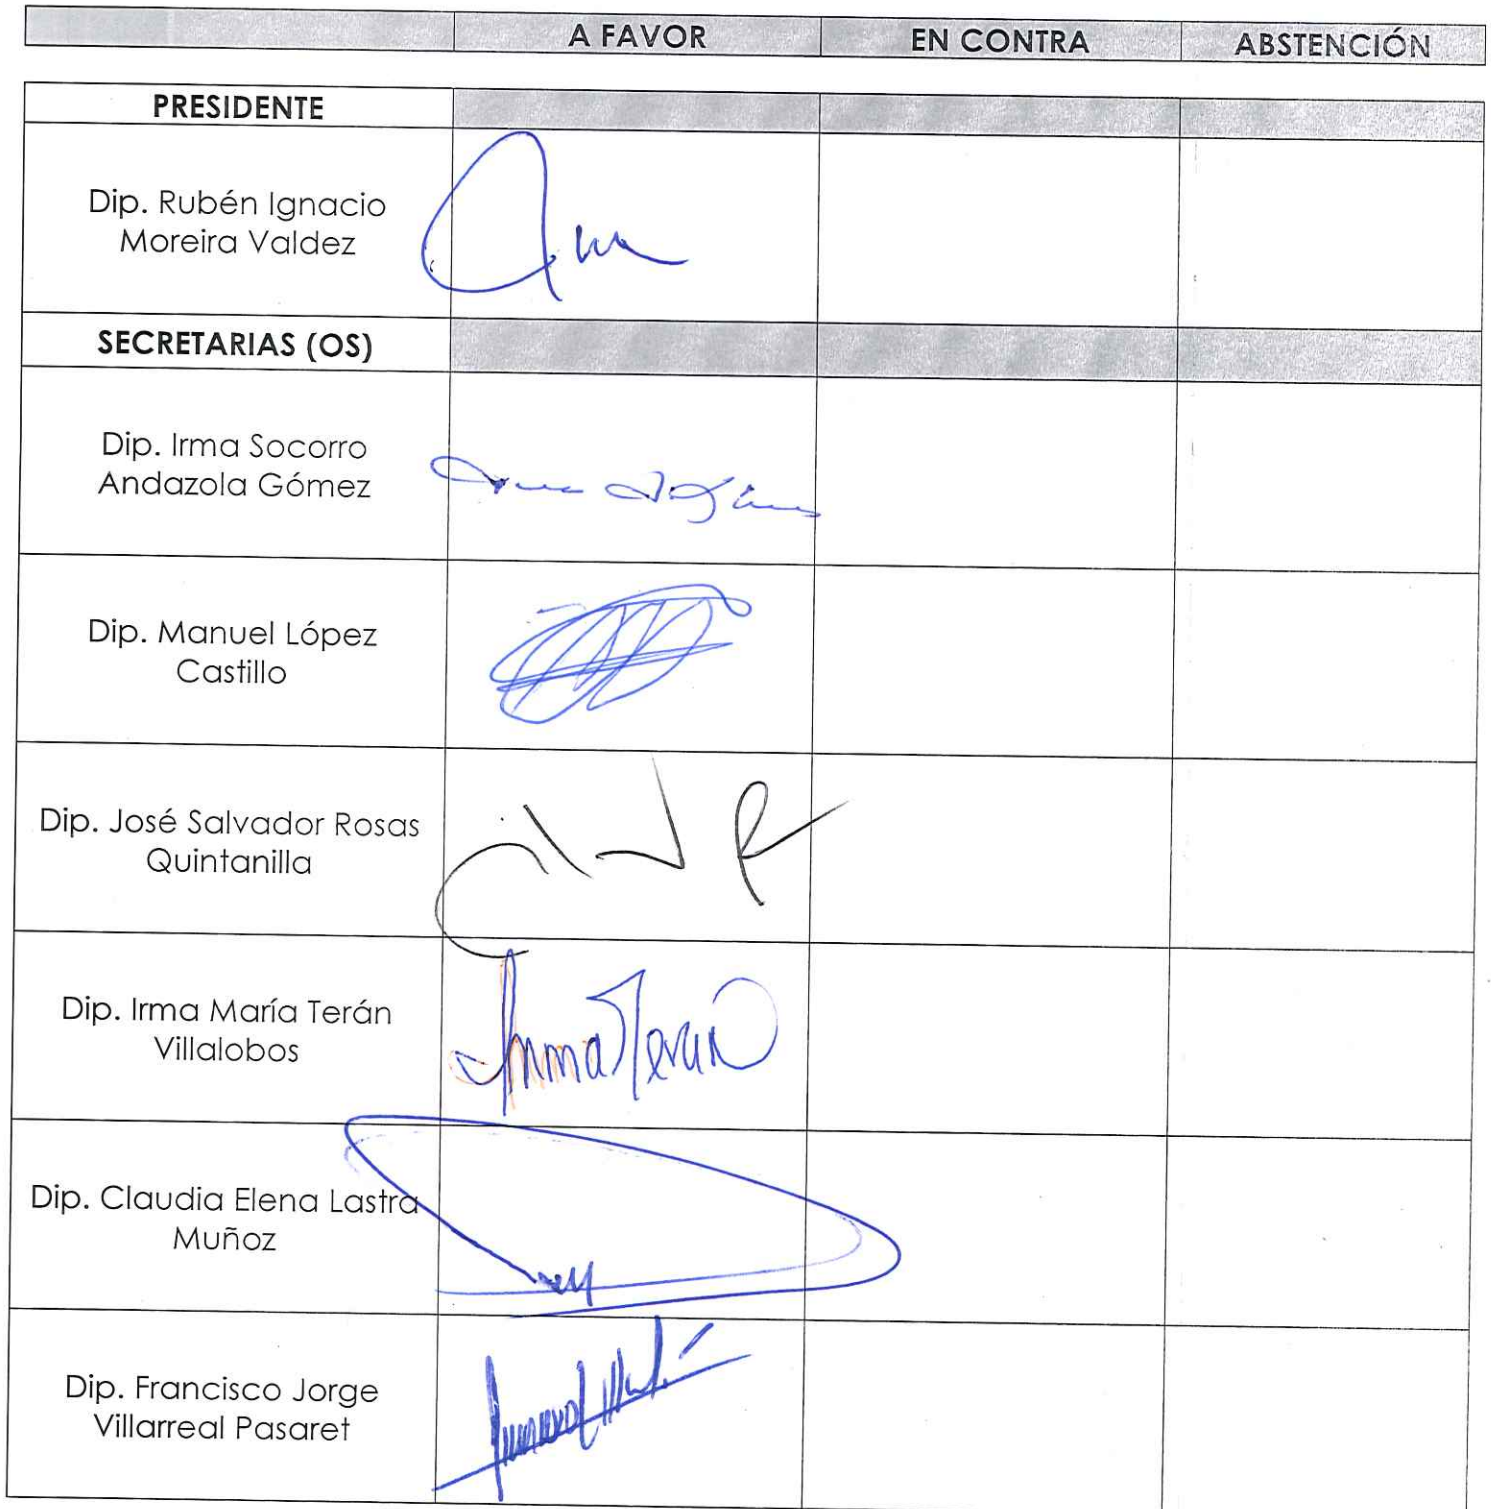 A FAVOR EN CONTRA ABSTENCIÓN
PRESIDENTE
Dip. Rubén Ignacio
Moreira Valdez
SECRETARIAS (OS)
Dip. Irma Socorro
Andazola Gómez
Dip. Manuel López
Castillo
Dip. José Salvador Rosas
Quintanilla
Dip. Irma María Terán
Villalobos
Irma Terán
Dip. Claudia Elena Lastra
Muñoz
Dip. Francisco Jorge
Villarreal Pasaret